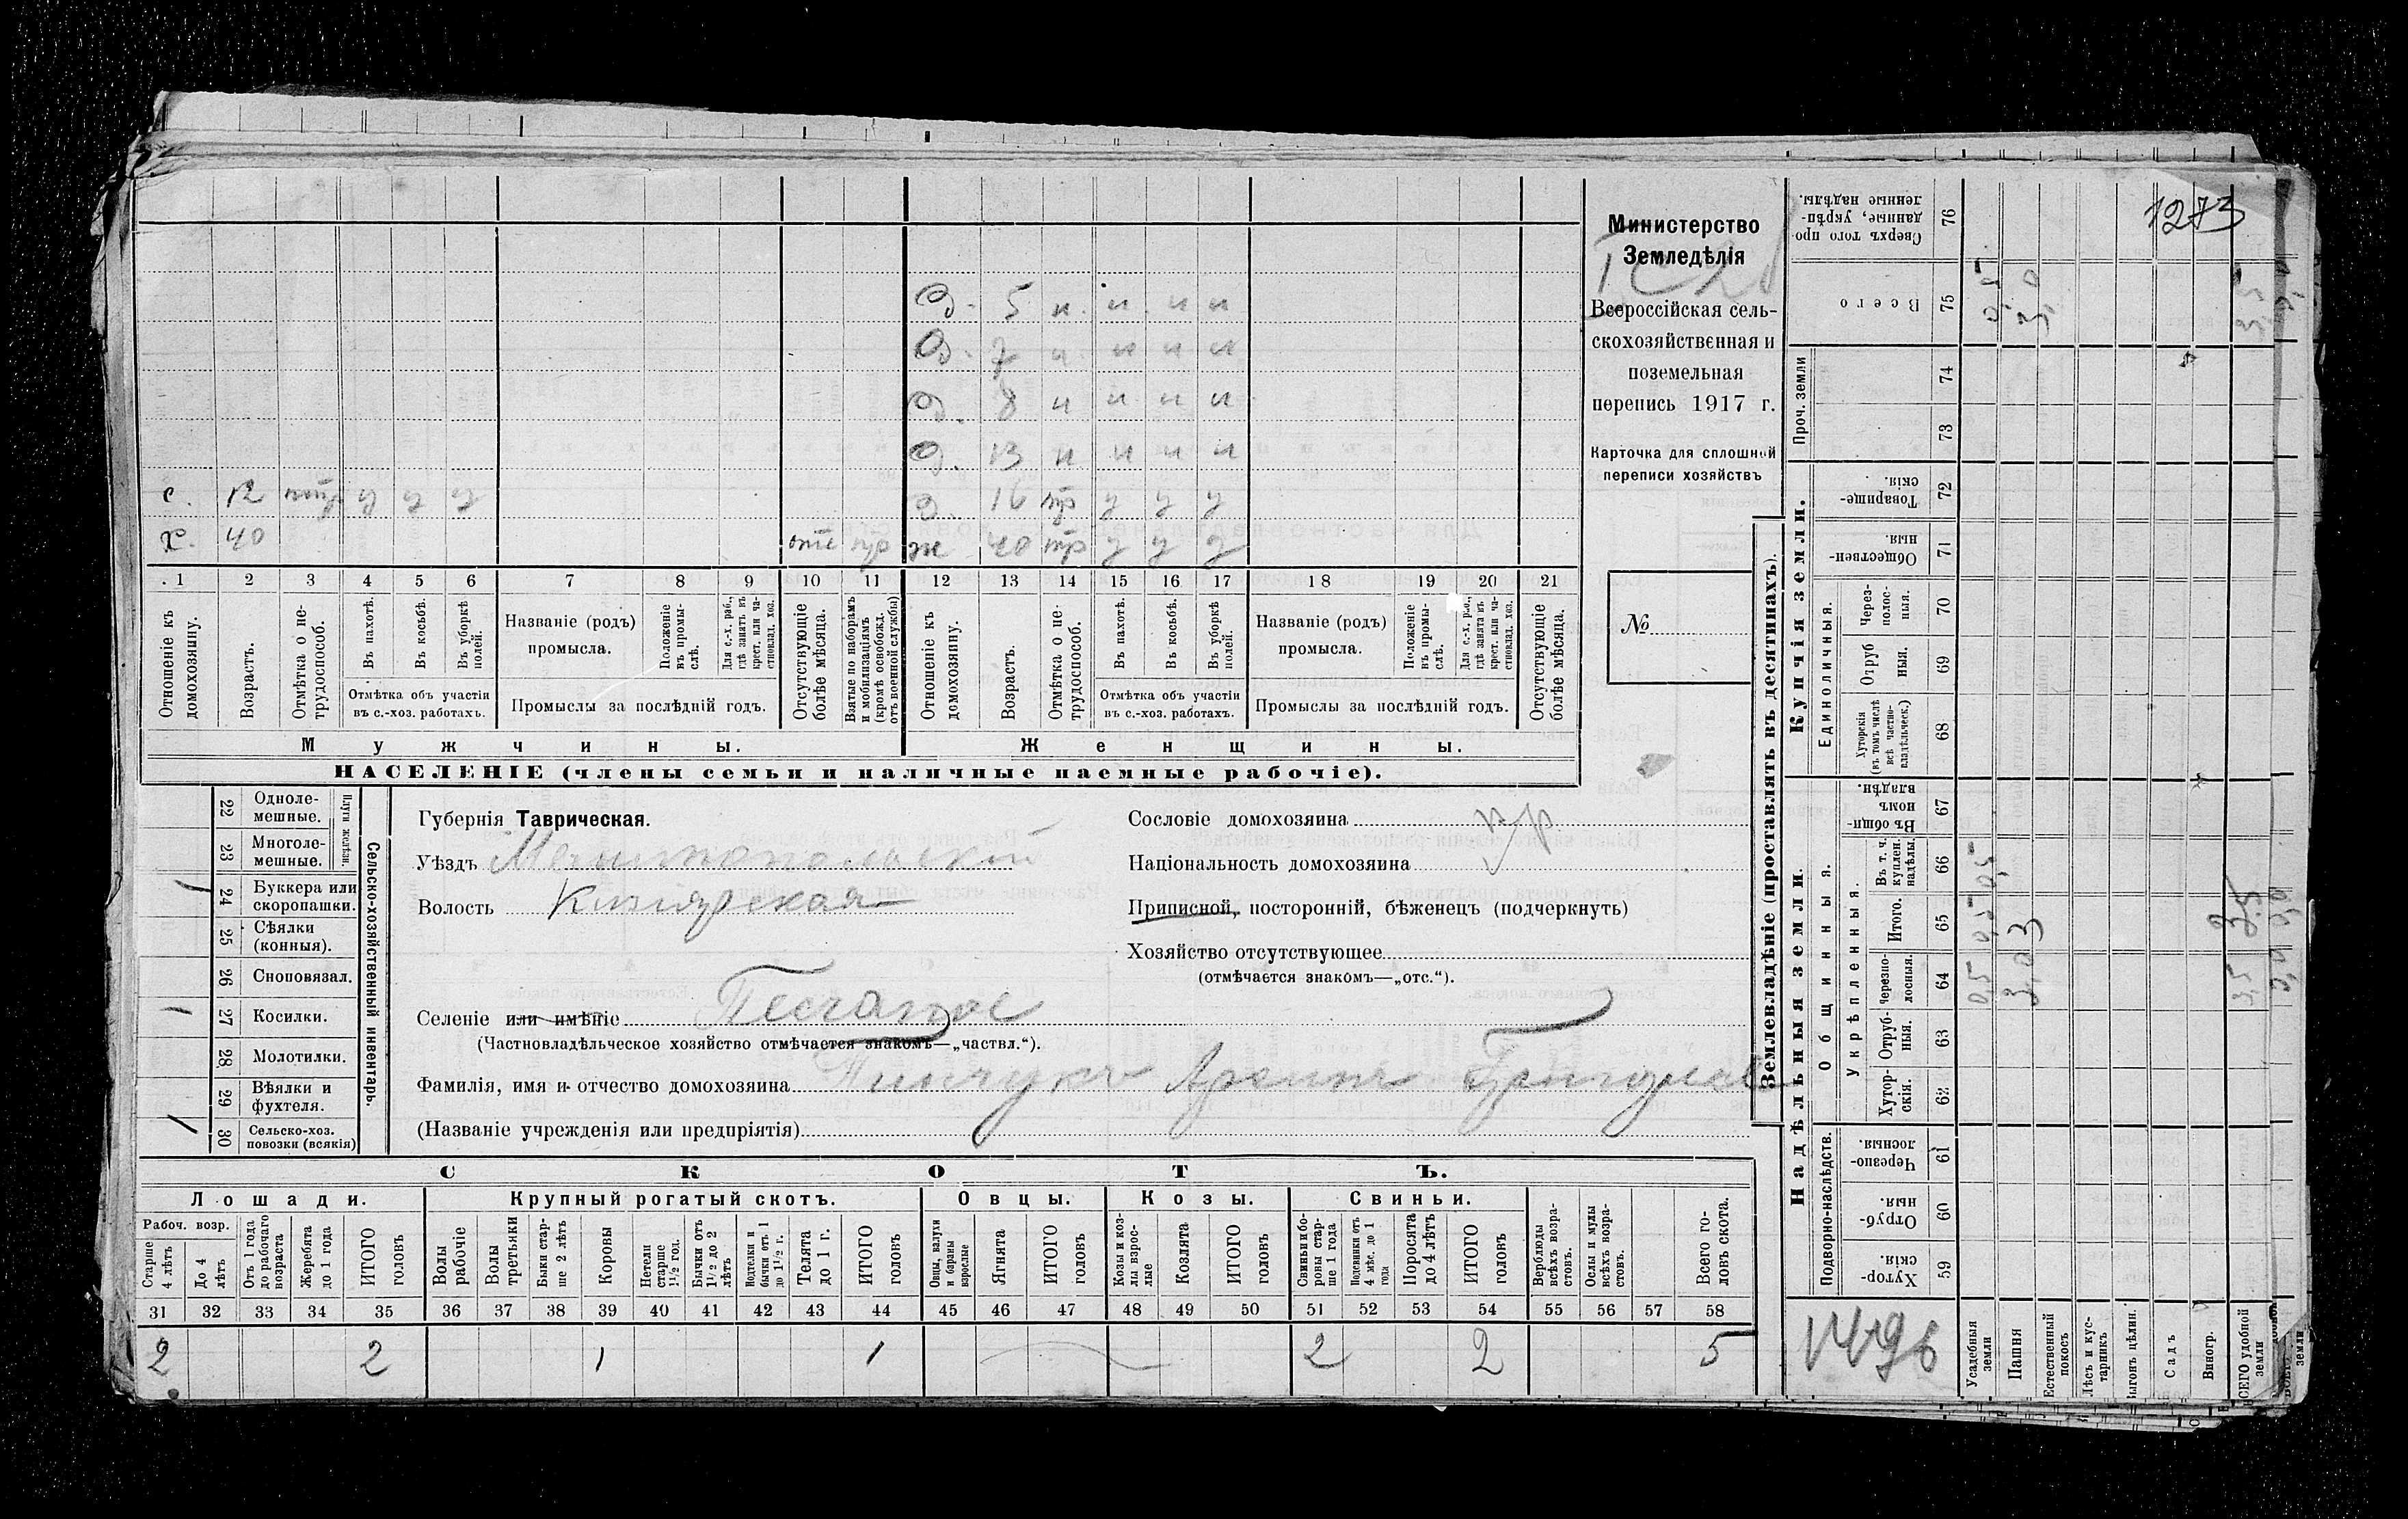 1273
Министерство
Земледѣлія
Всероссійская сель-
скохозяйственная и
поземельная
перепись 1917 г.
Карточка для сплошной
переписи хозяйствъ
№
Д. 5 н. н. н н
Д. 7 н. н н н
Д. 8 н н н н
Д. 13 н н н н
с. 12 у у у
Д. 16 пр у у у
Х. 40 отс ж 40 пр у у у
1 2 3 4 5 6 7 8 9 10 11 12 13 14 15 16 17 18 19 20 21
Отношеніе къ домохозяину.
Возрастъ.
Отмѣтка о не-трудоспособ.
Въ пахотѣ.
Въ косьбѣ.
Въ уборкѣ полей.
Отмѣтка объ участіи
въ с.-хоз. работахъ.
Названіе (родъ)
промысла.
Положеніе въ промы-слѣ.
Для с.-х. раб., гдѣ занятъ въ крест. или ча-стновлад. хоз.
Промыслы за послѣдній годъ.
Отсутствующіе болѣе мѣсяца.
Взятые по наборамъ и мобилизаціямъ (кромѣ освобожд. отъ военной службы)
Отношеніе къ домохозяину.
Возрастъ.
Отмѣтка о не-трудоспособ.
Въ пахотѣ.
Въ косьбѣ.
Въ уборкѣ полей.
Отмѣтка объ участіи
въ с.-хоз. работахъ.
Названіе (родъ)
промысла.
Положеніе въ промы-слѣ.
Для с.-х. раб., гдѣ занята въ крест. или ча-стновлад. хоз.
Промыслы за послѣдній годъ.
Отсутствующіе болѣе мѣсяца.
Мужчины.
Женщины.
НАСЕЛЕНІЕ (члены семьи и наличные наемные рабочіе).
Сельско-хозяйственный инвентарь.
Плуги желѣзн.
22 Одноле-мешные.
23 Многоле-мешные.
24 Буккера или скоропашки. 1
25 Сѣялки (конныя).
26 Сноповязал.
27 Косилки. 1
28 Молотилки.
29 Вѣялки и фухтеля.
30 Сельско-хоз. повозки (всякія) 1
Губернія Таврическая.
Уѣздъ Мелитопольскій
Волость
Селеніе или имѣніе Песчаное
(Частновладѣльческое хозяйство отмѣчается знакомъ—„частвл.“).
Фамилія, имя и отчество домохозяина
(Названіе учрежденія или предпріятія)
Сословіе домохозяина
Національность домохозяина
Приписной, посторонній, бѣженецъ (подчеркнуть)
Хозяйство отсутствующее
(отмѣчается знакомъ—„отс.“).
СКОТЪ.
Лошади.
Рабоч. возр.
Старше 4 лѣтъ
До 4 лѣтъ
Отъ 1 года до рабочаго возраста
Жеребята до 1 года
ИТОГО головъ
Крупный рогатый скотъ.
Волы рабочіе
Волы третьяки
Быки стар-ше 2 лѣтъ
Коровы
Нетели старше 1½ год.
Бычки отъ 1½ до 2 лѣтъ
Подтелки и бычки отъ 1 до 1½ г.
Телята до 1 г.
ИТОГО головъ
Овцы.
Овцы, валухи и бараны взрослые
Ягнята
ИТОГО головъ
Козы.
Козы и коз-лы взрос-лые
Козлята
ИТОГО головъ
Свиньи.
Свиньи и бо-ровы стар-ше 1 года
Подсвинки отъ 4 мѣс. до 1 года
Поросята до 4 лѣтъ
ИТОГО головъ
Верблюды всѣхъ возра-стовъ.
Ослы и мулы всѣхъ возра-стовъ.
Всего го-ловъ скота.
31 32 33 34 35 36 37 38 39 40 41 42 43 44 45 46 47 48 49 50 51 52 53 54 55 56 57 58
2 2 1 1 2 2 5
Землевладѣніе (проставлять въ десятинахъ).
Купчія земли.
Надѣльныя земли.
Сверхъ того про-данные, укрѣп-ленные надѣлы. 76
Всего 75 0,5 3,0
Проч. земли 74 73
Товарище-скія. 72
Обществен-ныя. 71
Единоличныя.
Через-полос-ныя. 70
Отруб-ныя. 69
Хуторскія (въ томъ числѣ всѣ частно-владѣльческ.) 68
Общинныя.
Въ общи-номъ владѣн. 67
Укрѣпленныя.
Въ т. ч. куплен. надѣлы. 66 0,5
Итого. 65 0,5 3
Черезпо-лосныя. 64 0,5 3,0 3,5
Отруб-ныя. 63
Хутор-скія. 62
Подворно-наслѣдств.
Черезпо-лосныя. 61
Отруб-ныя. 60
Хутор-скія. 59
Усадебныя земли
Пашня
Естественный покосъ
Лѣсъ и кус-тарникъ
Выгонъ цѣлин.
Садъ
Виногр.
ВСЕГО удобной земли